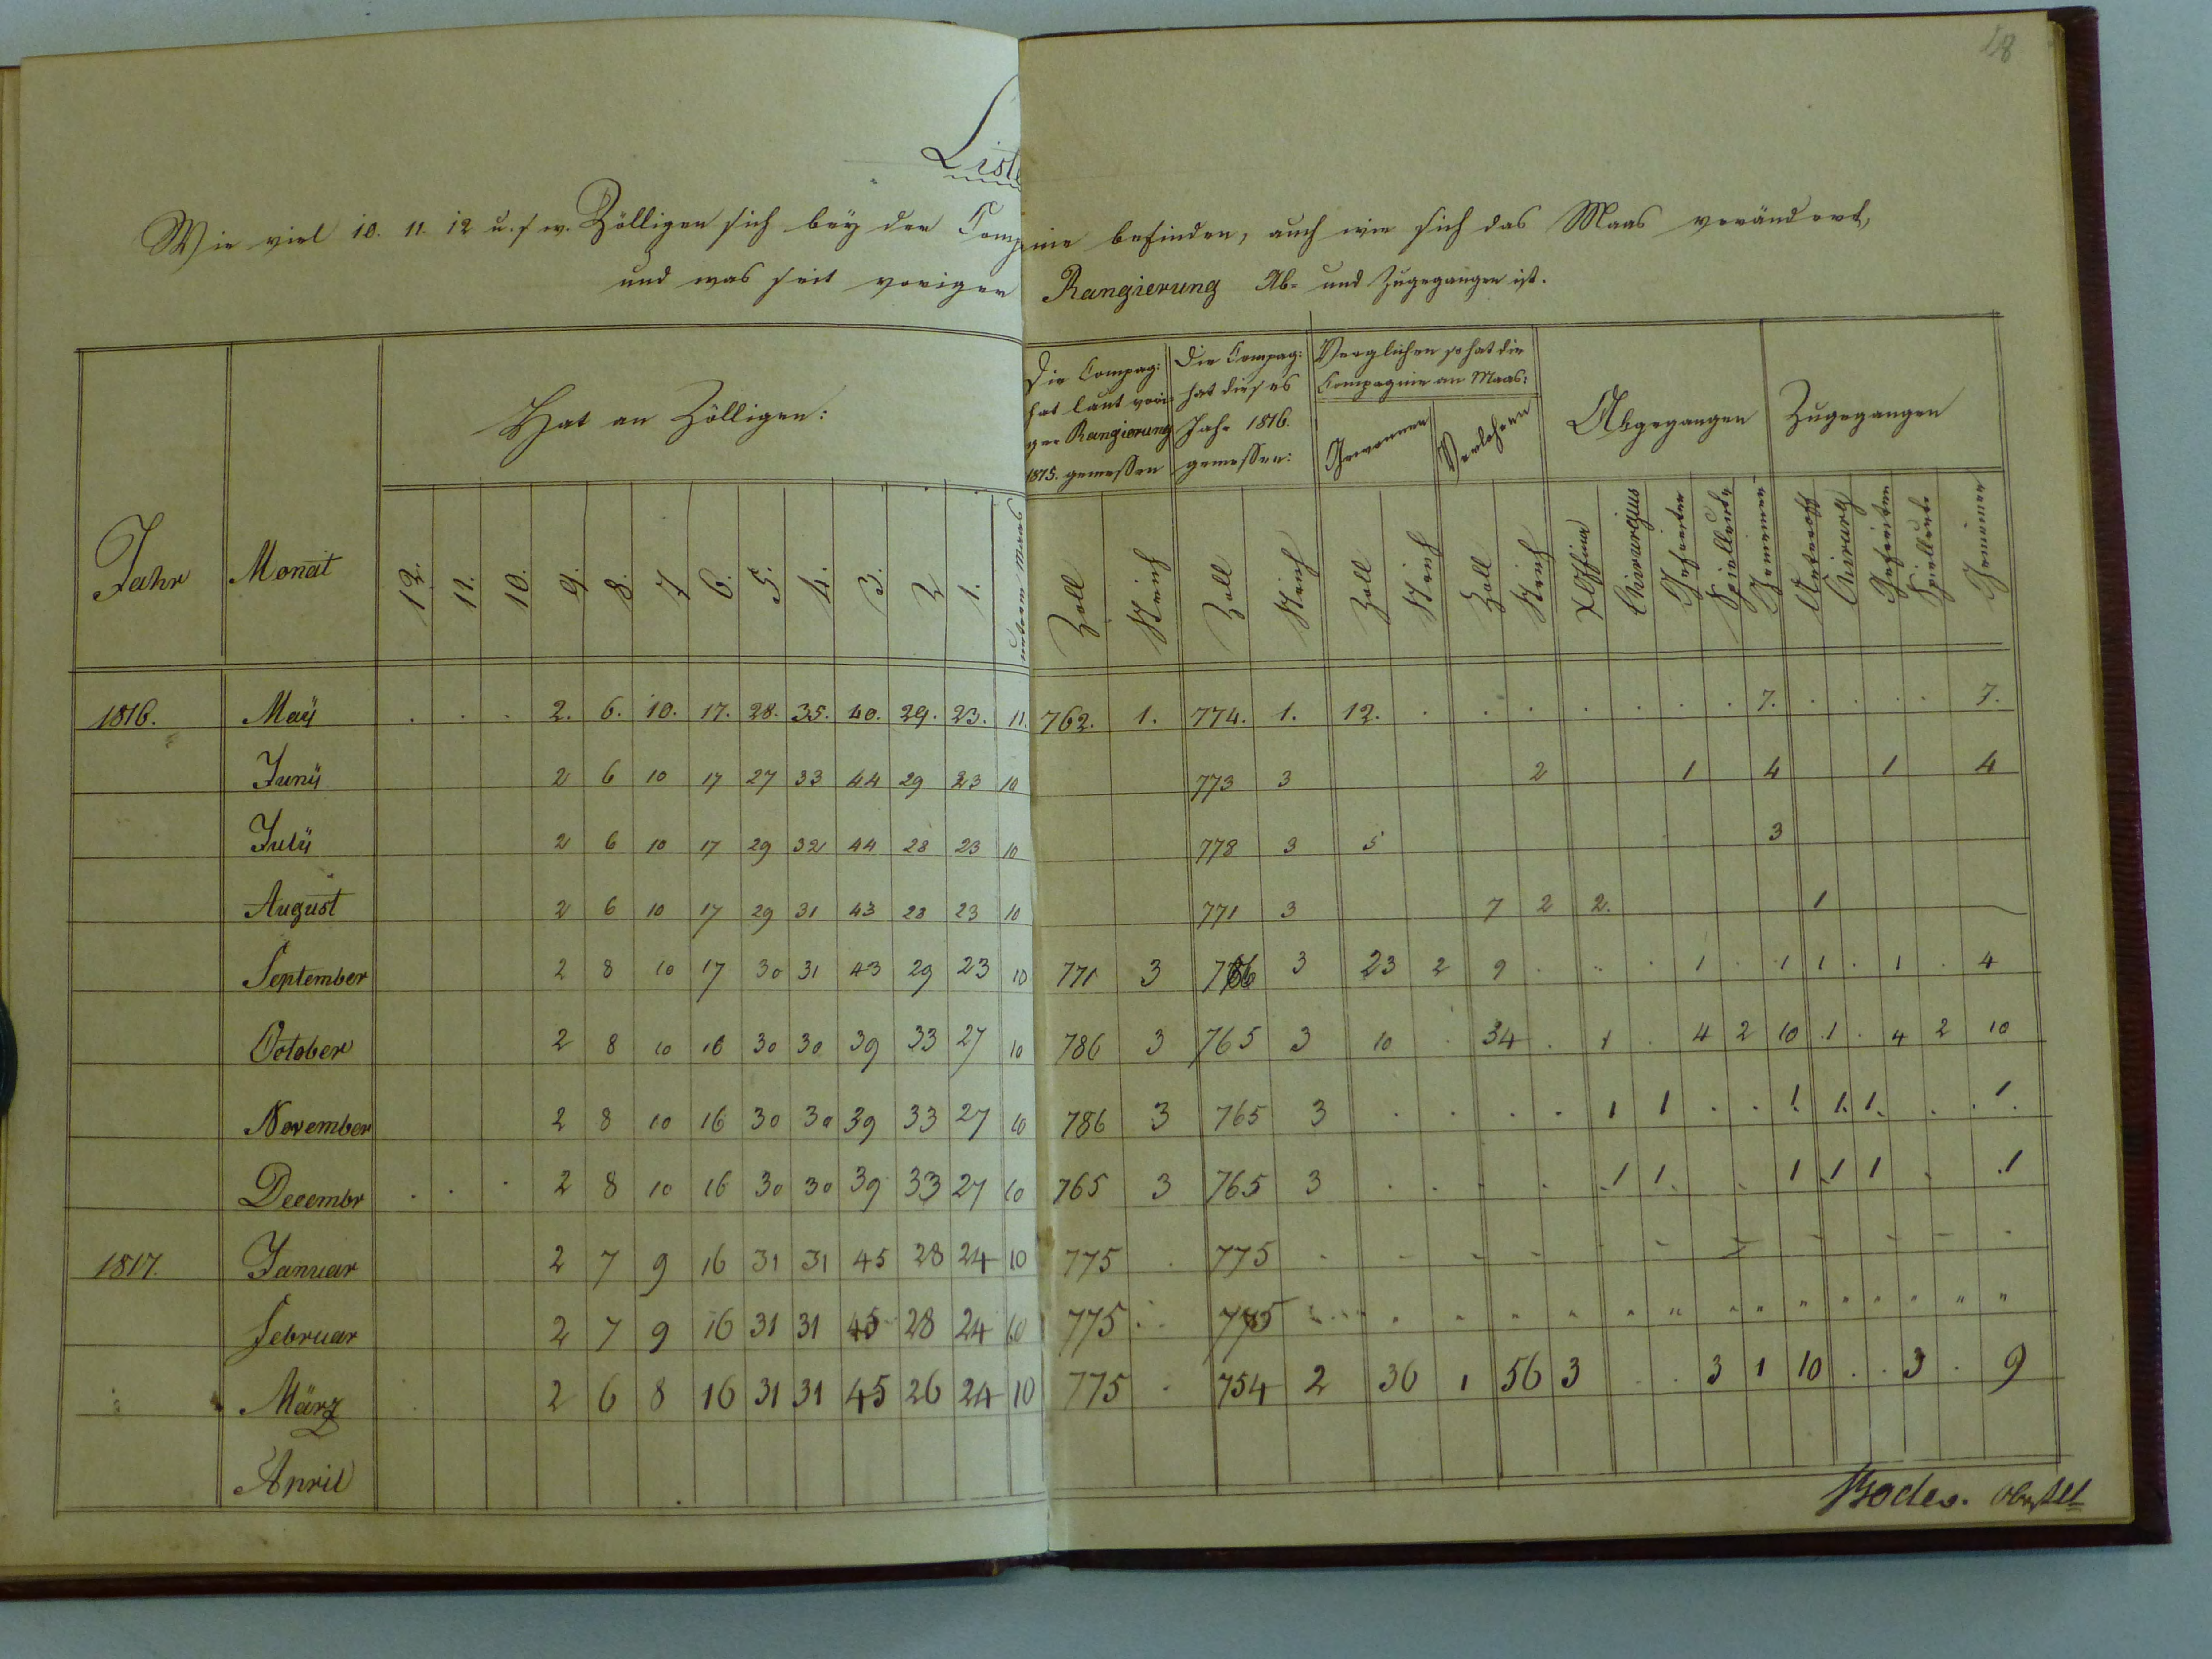 18
Liste
Wie viel 10. 11. 12 u. s. w. Zölligen sich bey der Compnie befinden, auch wie sich das Maas verändert,
und was seit voriger Rangierung Ab- und Zugegangen ist.
Jahr Monat Hat an Zölligen:
12. 11. 10. 9. 8. 7 6. 5. 4. 3. 2 1. unterm Maas
Die Compag: hat laut vori- ger Rangierung 1815. gemessen
Die Compag: hat dieses Jahr 1816. gemessen:
Verglichen so hat die Compagnie an Maas:
Gewonnen Verlohren
Abgegangen Zugegangen
Zoll Strich Zoll Strich Zoll Strich Zoll Strich
Chirurgus Gefreiter Spielleute Gemeinen Unteroff Chirurg Gefreiten Spielleute Gemeinen
1816. Maÿ . . . 2. 6. 10. 17. 28. 35. 40. 29. 23. 11. 762. 1. 774. 1. 12. . . . . . . . 7. . . . . 7.
Junÿ 2 6 10 17 27 33 44 29 23 10 773 3 2 1 4 1 4
Julÿ 2 6 10 17 29 32 44 28 23 10 778 3 5 3
August 2 6 10 17 29 31 43 28 23 10 771 3 7 2 2. 1
September 2 8 10 17 30 31 43 29 23 10 771 3 786 3 23 2 9 . . . 1 . 1 1 . 1 . 4
October 2 8 10 16 30 30 39 33 27 10 786 3 765 3 10 . 34 . 1 . 4 2 10 1 . 4 2 10
November 2 8 10 16 30 30 39 33 27 10 786 3 765 3 . . . . 1 1 . . 1. 1. 1. . . 1.
Decembr . . . 2 8 10 16 30 30 39 33 27 10 765 3 765 3 . . . . 1 1. . 1 1 1 . .1
1817. Januar 2 7 9 16 31 31 45 28 24 10 775 . 775 - - - - - - - - - - -
Februar 2 7 9 16 31 31 45 28 24 10 775 . . 775 " " " " " " " " " " " " " "
März 2 6 8 16 31 31 45 26 24 10 775 . 754 2 36 1 56 3 . . 3 1 10 . . 3 . 9
April